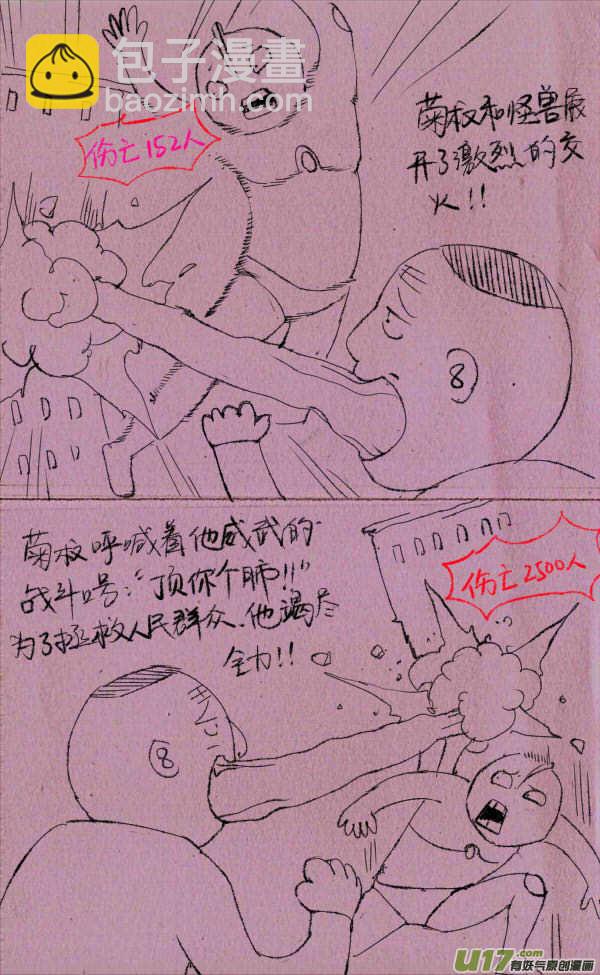 包子漫畫
baozimh.com
伤亡152人
菊叔和怪兽展
开了激烈的交
火!!
8
菊叔呼喊着他威武的
战斗口号:"顶你个肺!!"
为了拯救人民群众.他竭尽
全力!!
伤亡2500人
8
U17.com
有妖气原创漫画